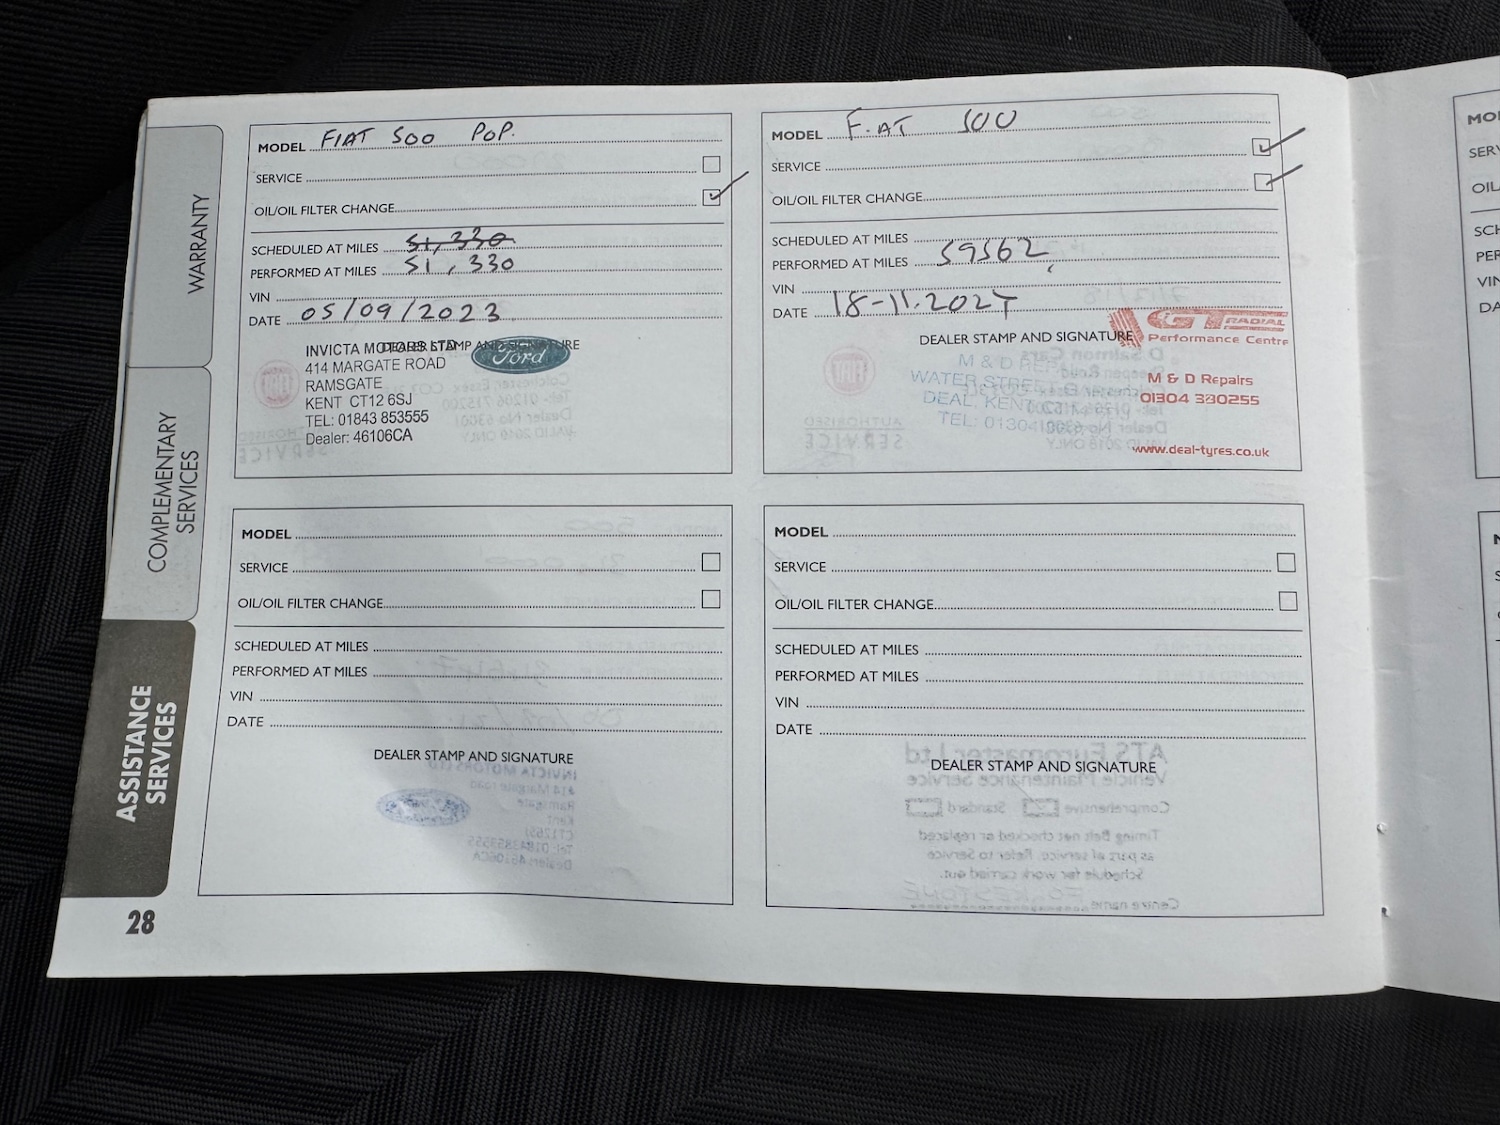 WARRANTY
COMPLEMENTARY
SERVICES
ASSISTANCE
SERVICES
28
MODEL FIAT 500 POP.
SERVICE
OIL/OIL FILTER CHANGE
SCHEDULED AT MILES 51,330
PERFORMED AT MILES 51,330
VIN
DATE 05/09/2023
DEALER STAMP AND SIGNATURE
INVICTA MOTORS LTD
Ford
414 MARGATE ROAD
RAMSGATE
KENT CT12 6SJ
TEL: 01843 853555
Dealer: 46106CA
MODEL FIAT 500
SERVICE
OIL/OIL FILTER CHANGE
SCHEDULED AT MILES
PERFORMED AT MILES 59562
VIN
DATE 18-11.202
DEALER STAMP AND SIGNATURE
GT RADIAL
Performance Centre
M & D REPAIRS
WATER STREET
DEAL, KENT
TEL: 01304
M & D Repairs
01304 380255
www.deal-tyres.co.uk
MODEL
SERVICE
OIL/OIL FILTER CHANGE
SCHEDULED AT MILES
PERFORMED AT MILES
VIN
DATE
DEALER STAMP AND SIGNATURE
MODEL
SERVICE
OIL/OIL FILTER CHANGE
SCHEDULED AT MILES
PERFORMED AT MILES
VIN
DATE
DEALER STAMP AND SIGNATURE